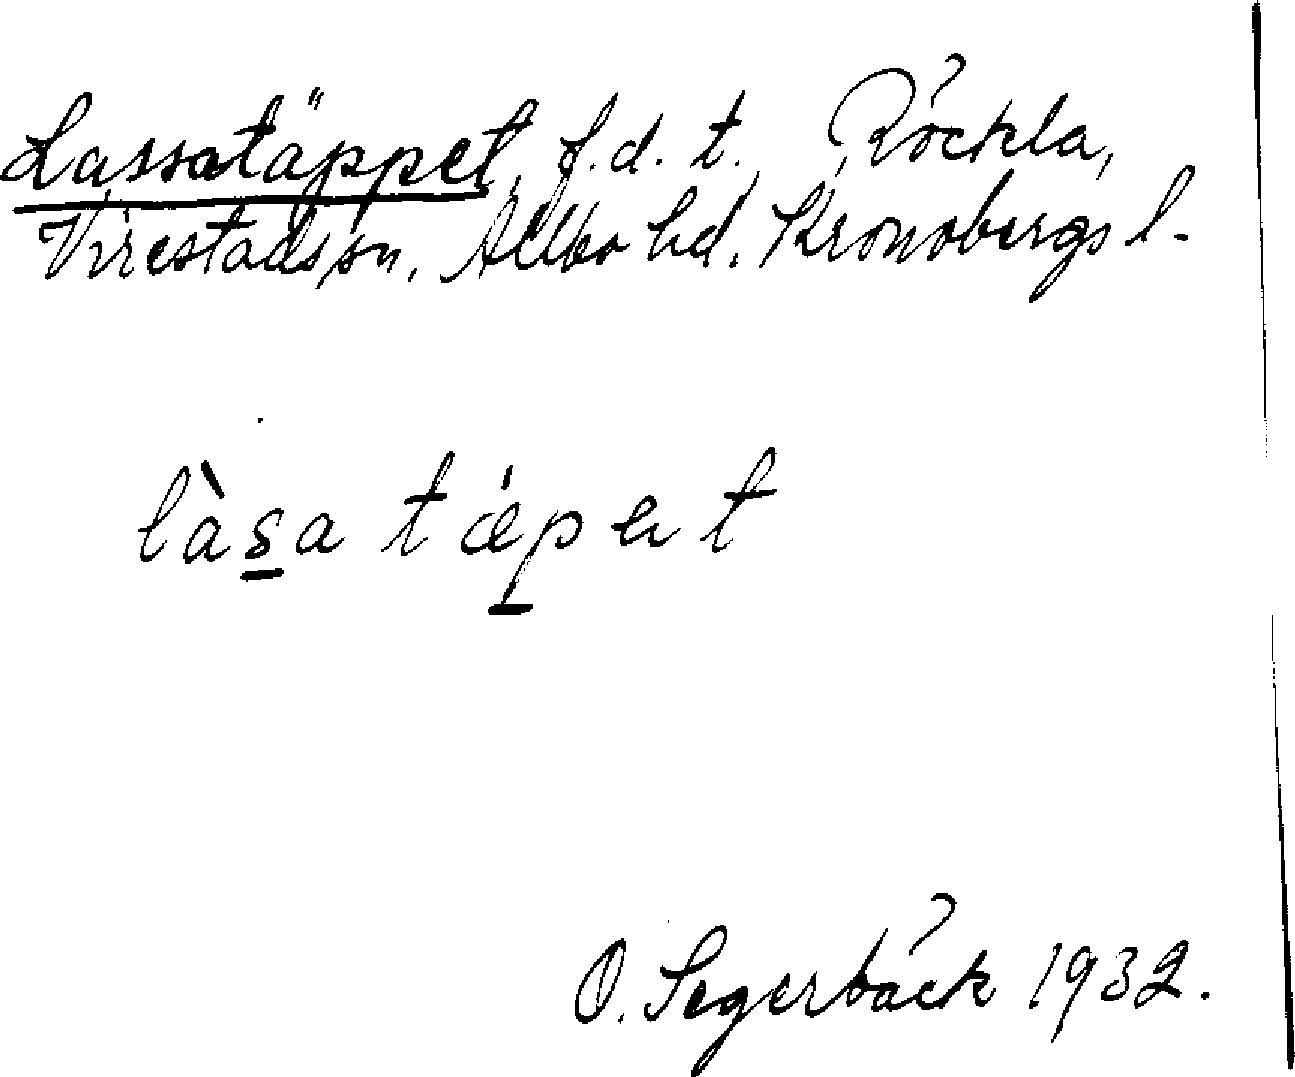 Lassatäppet, f.d. t. Röckla,
Virestads sn, Allbo hd. Kronobergs l.
làsa tǽpet
O. Segerbäck 1932.